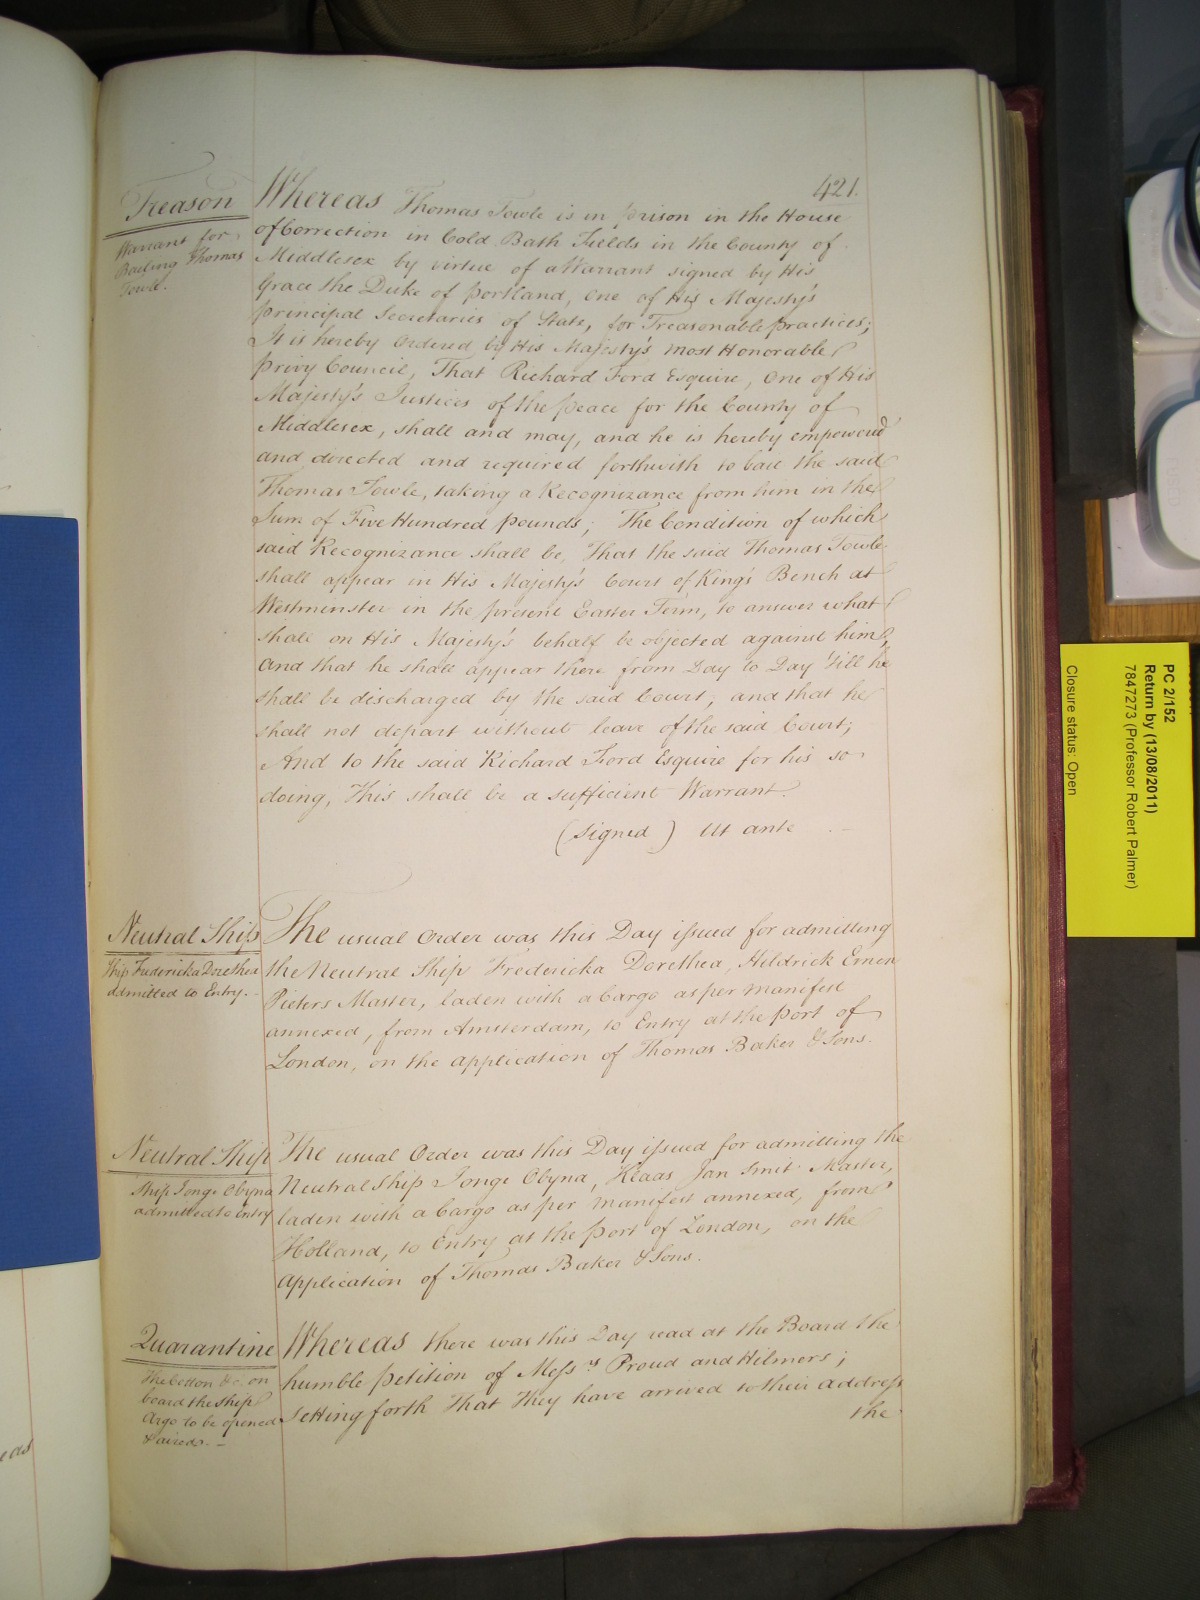 421.
Treason
Warrant for
Bailing Thomas
Towle.
Whereas Thomas Towle is in prison in the House
of Correction in Cold Bath Fields in the County of
Middlesex by virtue of a Warrant signed by His
Grace the Duke of Portland, One of His Majesty's
principal Secretaries of State, for Treasonable practices;
It is hereby Ordered by His Majesty's most Honorable
Privy Council, That Richard Ford Esquire, One of His
Majesty's Justices of the Peace for the County of
Middlesex, shall and may, and he is hereby empowered
and directed and required forthwith to bail the said
Thomas Towle, taking a Recognizance from him in the
Sum of Five Hundred pounds; The Condition of which
said Recognizance shall be, That the said Thomas Towle
shall appear in His Majesty's Court of King's Bench at
Westminster in the present Easter Term, to answer what
shall on His Majesty's behalf be objected against him,
and that he shall appear there from Day to Day 'till he
shall be discharged by the said Court; and that he
shall not depart without leave of the said Court;
And to the said Richard Ford Esquire for his so
doing, This shall be a sufficient Warrant.
(signed) Ut ante
Neutral Ship
Ship Fredericka Dorethea
admitted to Entry.
The usual Order was this Day issued for admitting
the Neutral Ship Fredericka Dorethea, Heldrick Ernen
Pieters Master, laden with a Cargo as per manifest
annexed, from Amsterdam, to Entry at the Port of
London, on the application of Thomas Baker & Sons.
Neutral Ship
Ship Jonge Obyna
admitted to Entry
The usual Order was this Day issued for admitting the
Neutral Ship Jonge Obyna, Klaas Jan Smit Master,
laden with a Cargo as per manifest annexed, from
Holland, to Entry at the Port of London, on the
Application of Thomas Baker & Sons.
Quarantine
The Cotton &c. on
board the Ship
Argo to be opened
& aired.
Whereas there was this Day read at the Board the
humble Petition of Messrs Proud and Hilmers;
setting forth That They have arrived to their address
the
PC 2/152
Return by (13/08/2011)
7847273 (Professor Robert Palmer)
Closure status: Open